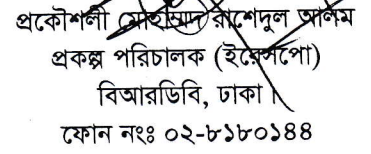 প্রকৌশলী মোহাম্মদ রাশেদুল আলম
প্রকল্প পরিচালক (ইরেসপো)
বিআরডিবি, ঢাকা।
ফোন নংঃ ০২-৮১৮০১৪৪